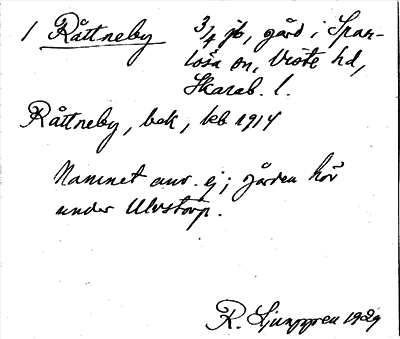 1 Råttneby 3/4 jb, gård i Span-
lösa sn, Viste hd,
Skarab. l.
Råttneby, bek, kb 1914
Namnet anv. ej; gården hör
under Ulvstorp.
R. Ljunggren 1929